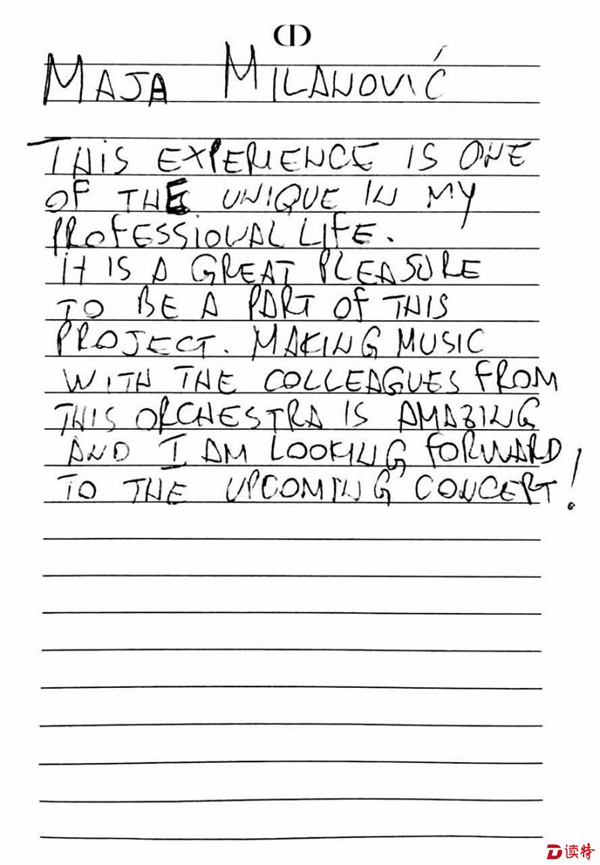 MAJA MILANOVIĆ
THIS EXPERIENCE IS ONE
OF THE UNIQUE IN MY
PROFESSIONAL LIFE.
IT IS A GREAT PLEASURE
TO BE A PART OF THIS
PROJECT. MAKING MUSIC
WITH THE COLLEAGUES FROM
THIS ORCHESTRA IS AMAZING
AND I AM LOOKING FORWARD
TO THE UPCOMING CONCERT!
D读特